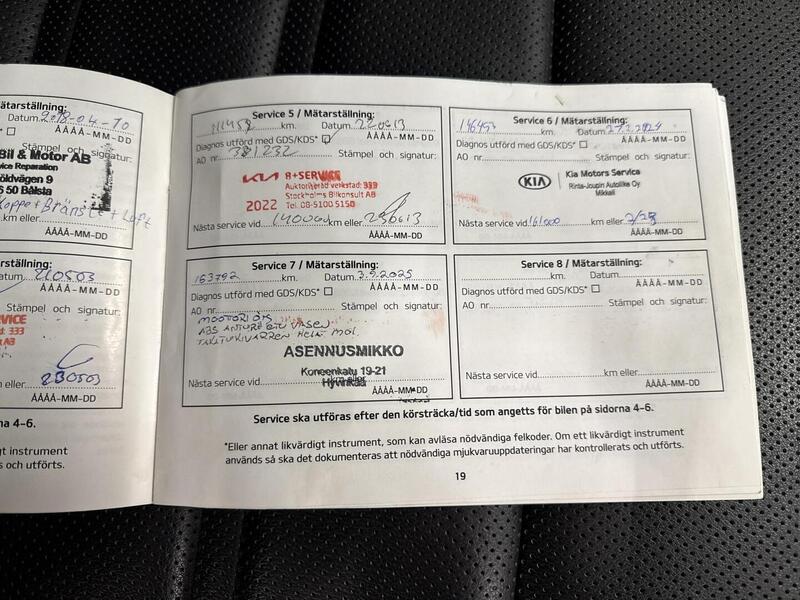 Mätarställning:
Datum 2018-04-10
ÅÅÅÅ-MM-DD
Stämpel och signatur:
Bil & Motor AB
Service Reparation
9
50 Bålsta
km eller
ÅÅÅÅ-MM-DD
Mätarställning:
Datum 210503
ÅÅÅÅ-MM-DD
Stämpel och signatur:
SERVICE
333
AB
km eller 230503
ÅÅÅÅ-MM-DD
4-6.
likvärdigt instrument
s och utförts.
Service 5 / Mätarställning:
km. Datum 220613
Diagnos utförd med GDS/KDS* ÅÅÅÅ-MM-DD
AO nr 381232 Stämpel och signatur:
KIA A+SERVICE
Auktoriserad verkstad: 333
Stockholms Bilkonsult AB
2022 Tel. 08-5100 5150
Nästa service vid 140000 km eller 230613
ÅÅÅÅ-MM-DD
Service 6 / Mätarställning:
146453 km. Datum 27.2.2024
Diagnos utförd med GDS/KDS* ÅÅÅÅ-MM-DD
AO nr Stämpel och signatur:
KIA Kia Motors Service
Rinta-Joupin Autoliike Oy
Mikkeli
Nästa service vid 161000 km eller 2/25
ÅÅÅÅ-MM-DD
Service 7 / Mätarställning:
163792 km. Datum 3.9.2025
Diagnos utförd med GDS/KDS* ÅÅÅÅ-MM-DD
AO nr Stämpel och signatur:
MOOTTORIÖLJY
ABS ANTURI ETU VASEN
MOL.
ASENNUSMIKKO
Koneenkatu 19-21
Hyvinkää
Nästa service vid km eller
ÅÅÅÅ-MM-DD
Service 8 / Mätarställning:
km. Datum
Diagnos utförd med GDS/KDS* ÅÅÅÅ-MM-DD
AO nr Stämpel och signatur:
Nästa service vid km eller
ÅÅÅÅ-MM-DD
Service ska utföras efter den körsträcka/tid som angetts för bilen på sidorna 4–6.
*Eller annat likvärdigt instrument, som kan avläsa nödvändiga felkoder. Om ett likvärdigt instrument
används så ska det dokumenteras att nödvändiga mjukvaruuppdateringar har kontrollerats och utförts.
19